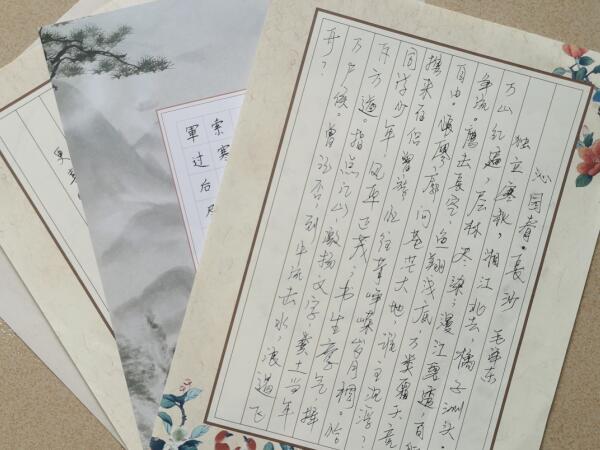 沁园春·长沙 毛泽东
独立寒秋,湘江北去,橘子洲头。
万山红遍,层林尽染,漫江碧透,百舸
争流。鹰击长空,鱼翔浅底,万类霜天竞
自由。怅寥廓,问苍茫大地,谁主沉浮?
携来百侣曾游 忆往昔峥嵘岁月稠。恰
同学少年 风华正茂,书生意气 挥
斥方遒。指点江山 激扬文字,粪土当年
万户侯。曾记否,到中流击水,浪遏飞
舟?
索寒
軍过后尽
更